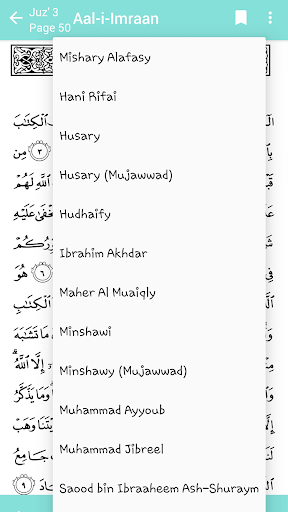 Juz' 3
Page 50
Aal-i-Imraan
Mishary Alafasy
Hani Rifai
Husary
Husary (Mujawwad)
Hudhaify
Ibrahim Akhdar
Maher Al Muaiqly
Minshawi
Minshawy (Mujawwad)
Muhammad Ayyoub
Muhammad Jibreel
Saood bin Ibraaheem Ash-Shuraym
ٱلْكِتَٰبَ
مِن
ٱللَّهِ لَهُمْ
عَلَيْهِ
هُوَ
ٱلْكِتَٰبَ
مَا تَشَٰبَهَ
إِلَّا ٱللَّهُ
وَمَا يَذَّكَّرُ
وَهَبْ
جَامِعُ
٩